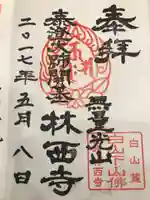 奉拝
無量光山
林西寺
泰澄大師開基
二〇一七年五月八日
白山麓
白山下山佛
林西寺